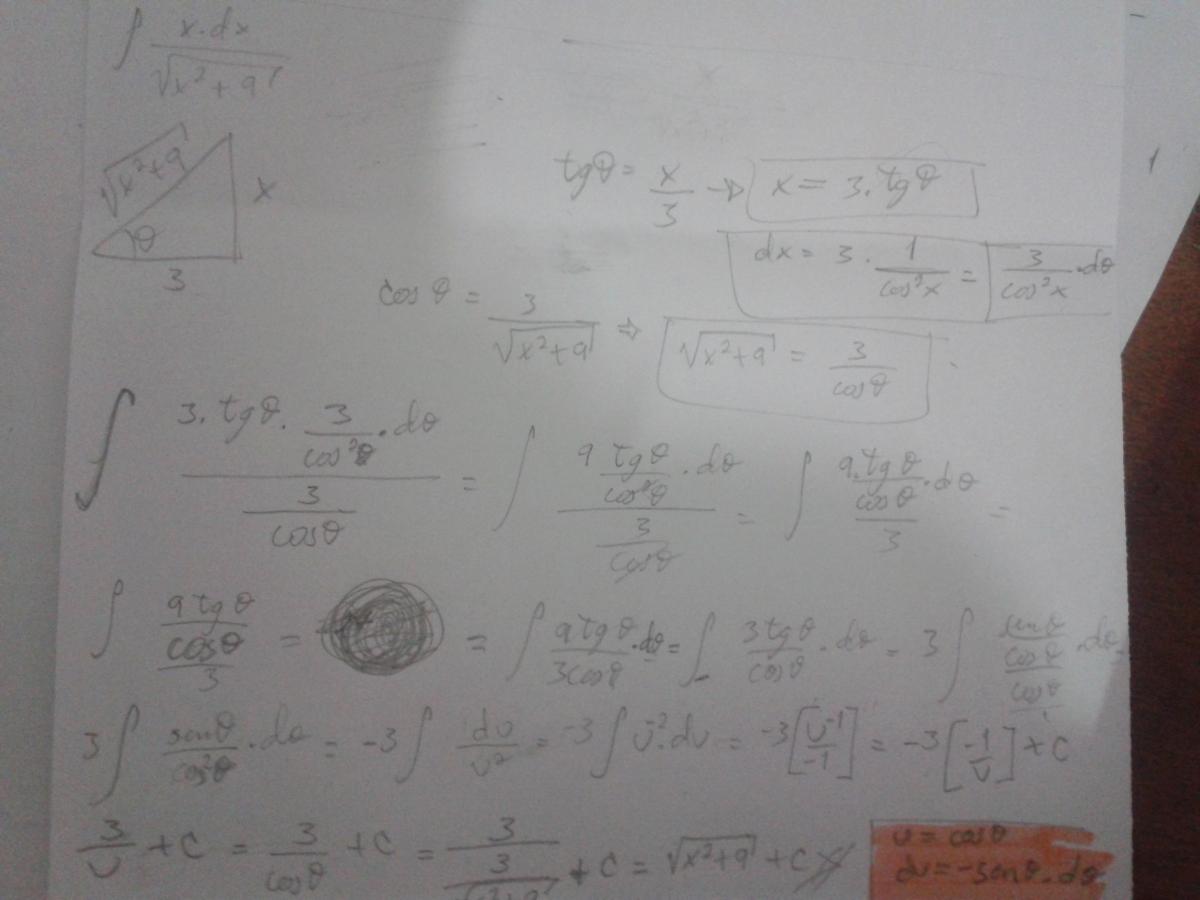 ∫ x.dx / √(x²+9)
√(x²+9) x θ 3
tgθ = x/3 → x = 3.tgθ
dx = 3 . 1/cos²x = 3/cos²x .dθ
cos θ = 3/√(x²+9) ⇒ √(x²+9) = 3/cosθ
∫ (3.tgθ. 3/cos²θ .dθ) / (3/cosθ) = ∫ (9 tgθ/cos²θ .dθ) / (3/cosθ) = ∫ (9.tgθ/cosθ)/3 .dθ =
∫ (9tgθ/cosθ)/3 = = ∫ 9tgθ/3cosθ .dθ = ∫ 3tgθ/cosθ .dθ = 3∫ (senθ/cosθ)/(cosθ/1) .dθ =
3∫ senθ/cos²θ .dθ = -3∫ du/u² = -3∫ u⁻².du = -3[u⁻¹/-1] = -3[-1/u] + C
3/u + C = 3/cosθ + C = 3/(3/√(x²+9)) + C = √(x²+9) + C
u = cosθ
du = -senθ.dθ